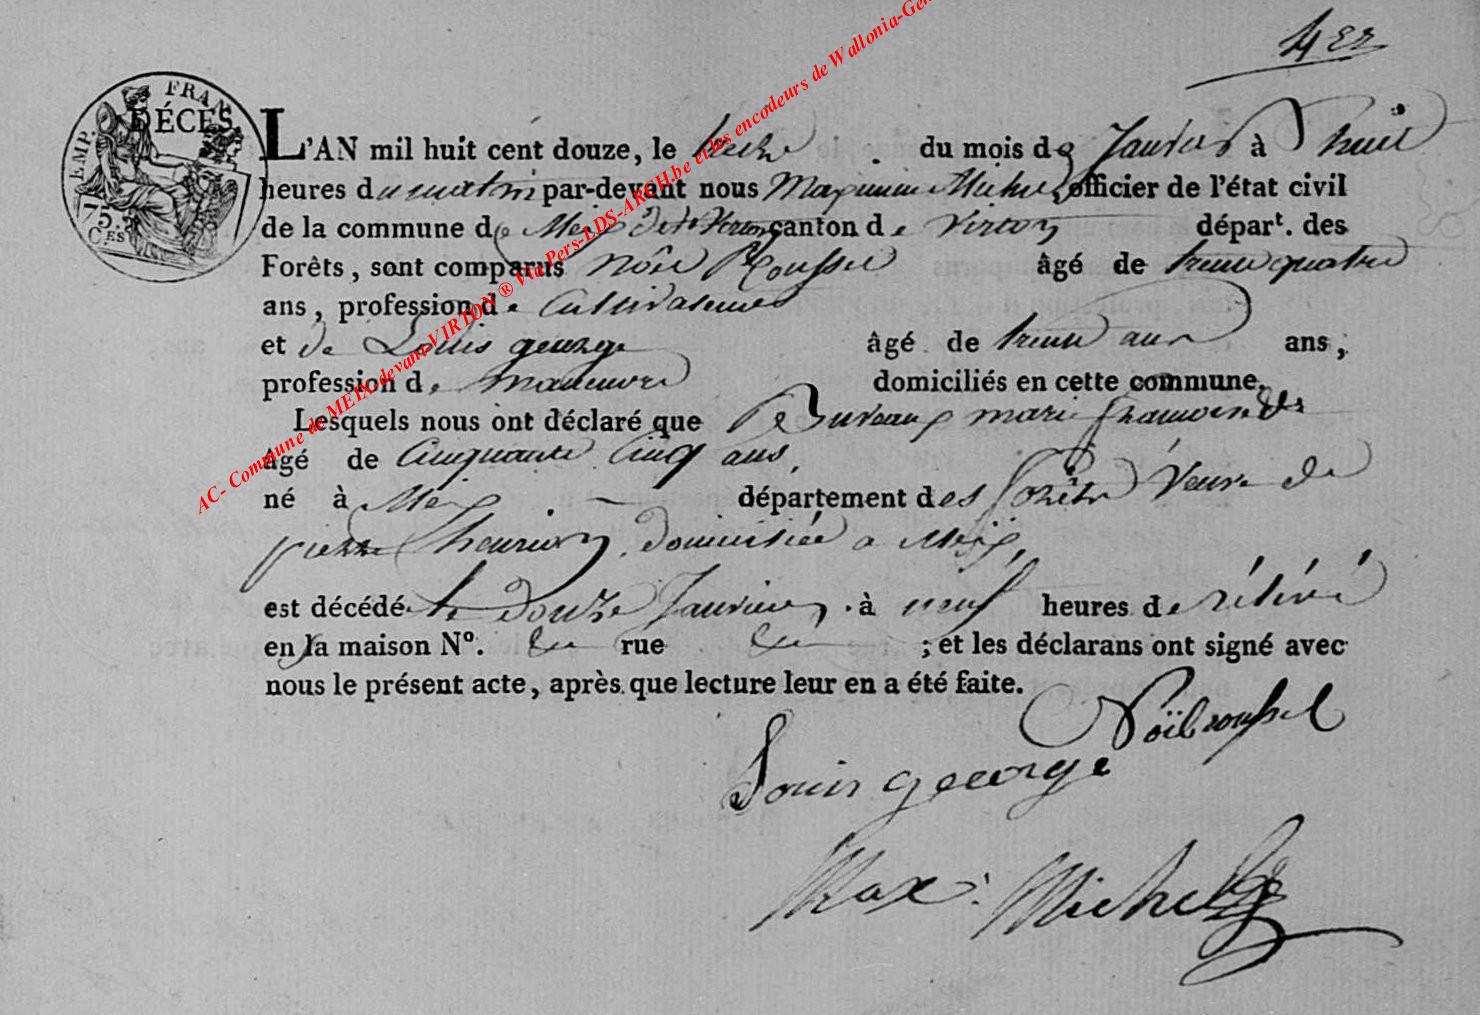 1er
EMP. FRAN.
75 Ces
DÉCES
L'AN mil huit cent douze, le treize du mois de Janvier à huit
heures du matin par-devant nous Maximin Michel officier de l'état civil
de la commune de Meix devt Virton canton de Virton départ. des
Forêts, sont comparus Noël Roussel âgé de trente quatre
ans, profession de Cultivateur
et de Louis george âgé de trente ans ans,
profession de manœuvre domiciliés en cette commune.
Lesquels nous ont déclaré que Bureaux marie
âgé de Cinquante Cinq ans,
né à Meix département des forêts Veuve de
pierre henrion, domiciliée a Meix,
est décédé le douze Janvier à neuf heures de rélévé
en la maison No. rue ; et les déclarans ont signé avec
nous le présent acte, après que lecture leur en a été faite.
Noël roussel
Louis george
Max: Michel
AC- Commune de MEIX-devant-VIRTON ® Via Pers-LDS-ARCH.be et les encodeurs de Wallonia-Gen